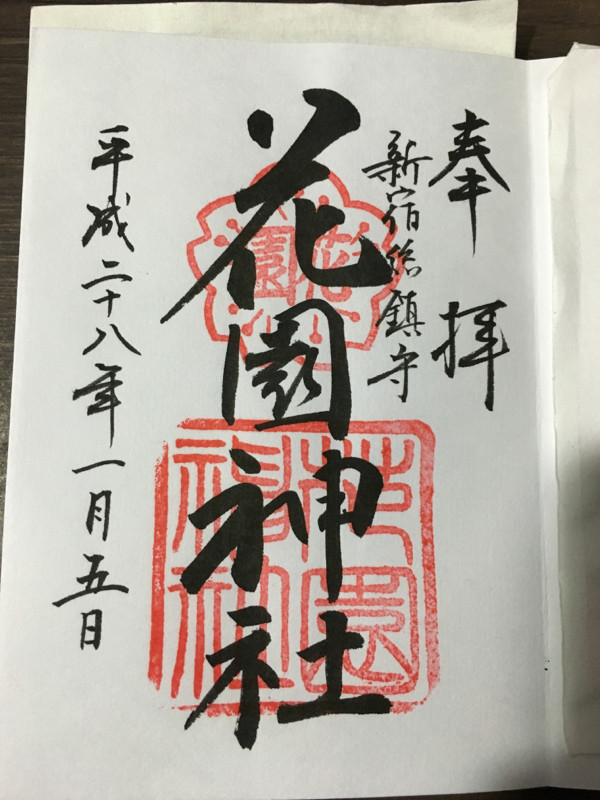 奉拝
新宿総鎮守
花園神社
平成二十八年一月五日
花園
花園神社